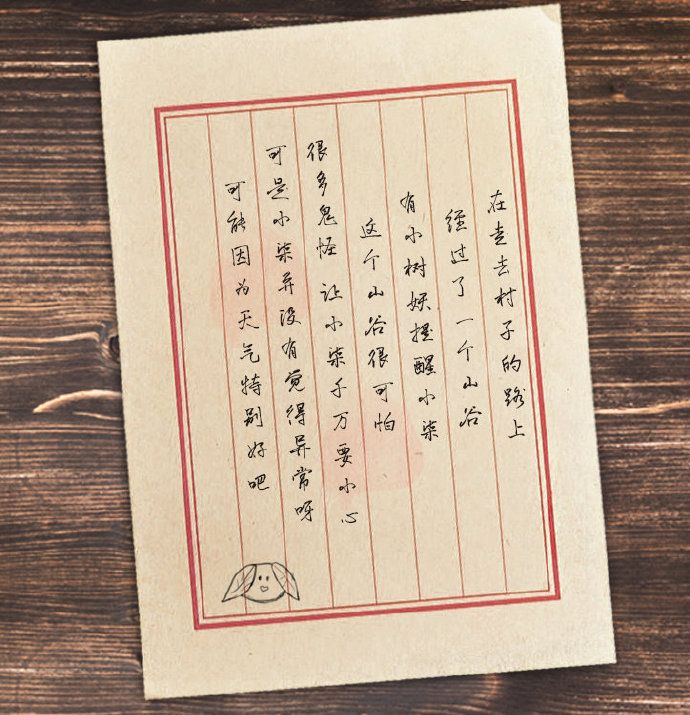 在走去村子的路上
经过了一个山谷
有小树妖提醒小柒
这个山谷很可怕
很多鬼怪 让小柒千万要小心
可是小柒并没有觉得异常呀
可能因为天气特别好吧